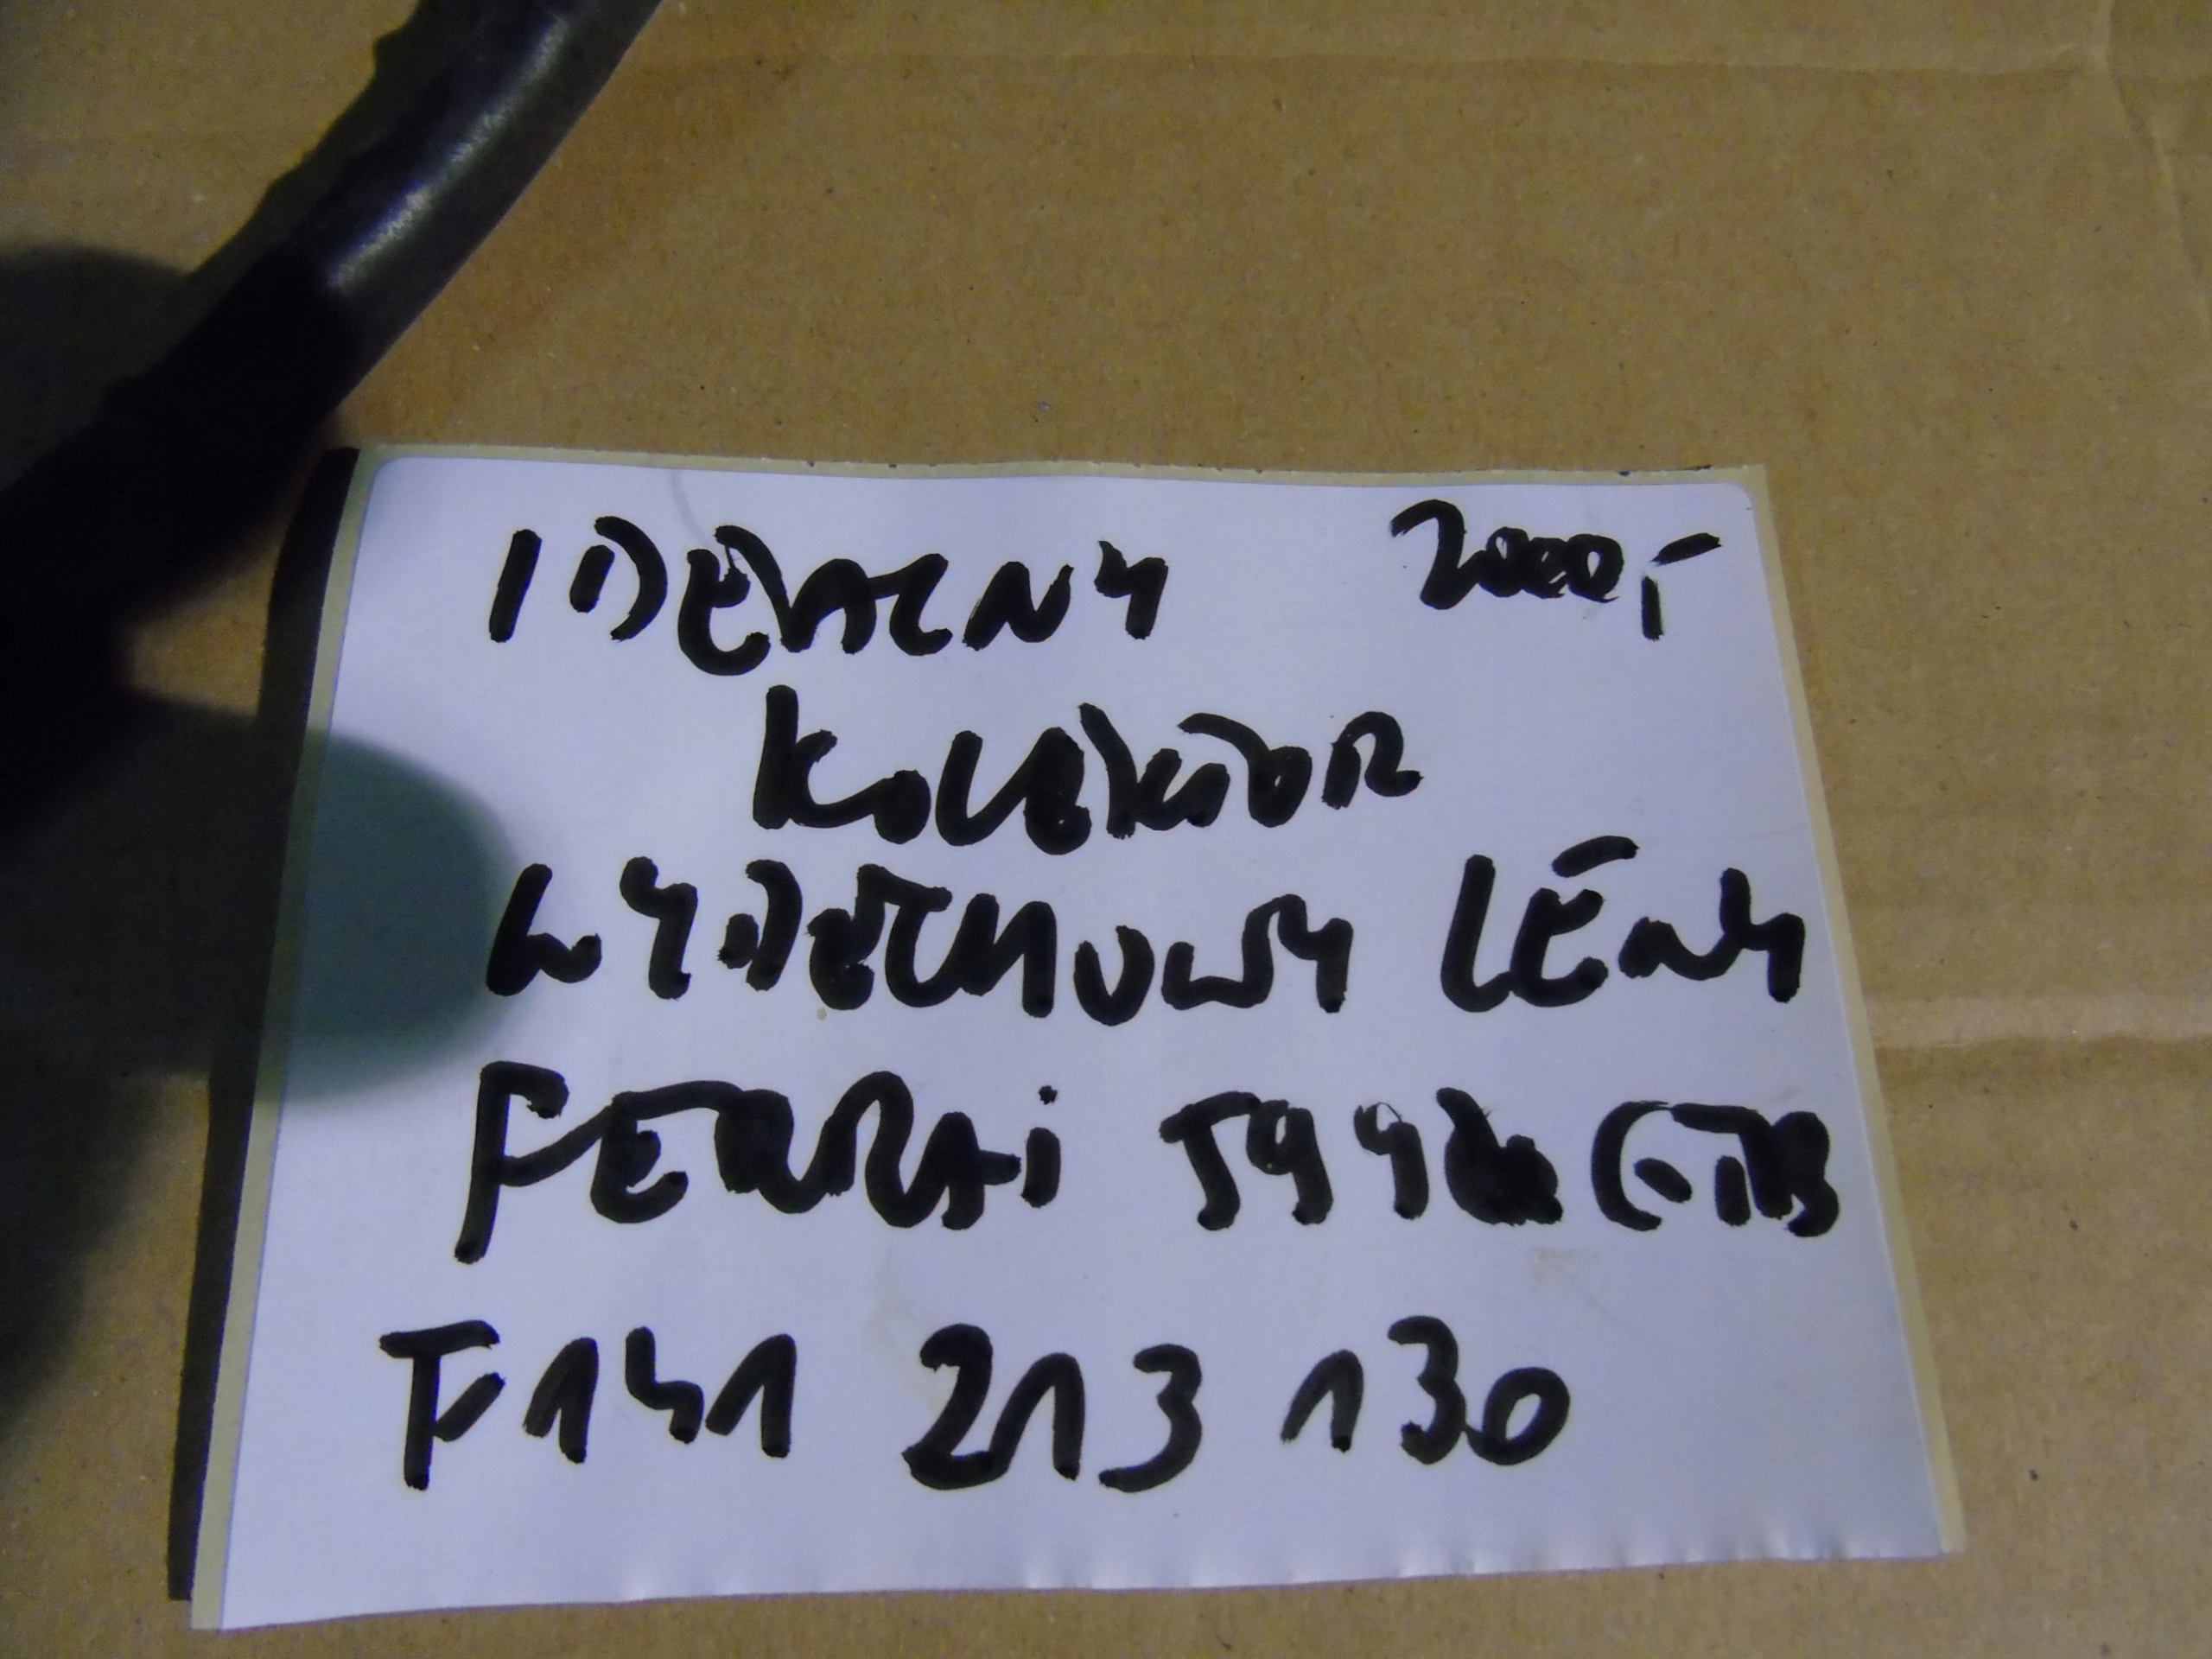 IDEALNY 2000,-
KOLEKTOR
WYDECHOWY LEWY
FERRAI 599 GTB
F141 213 130